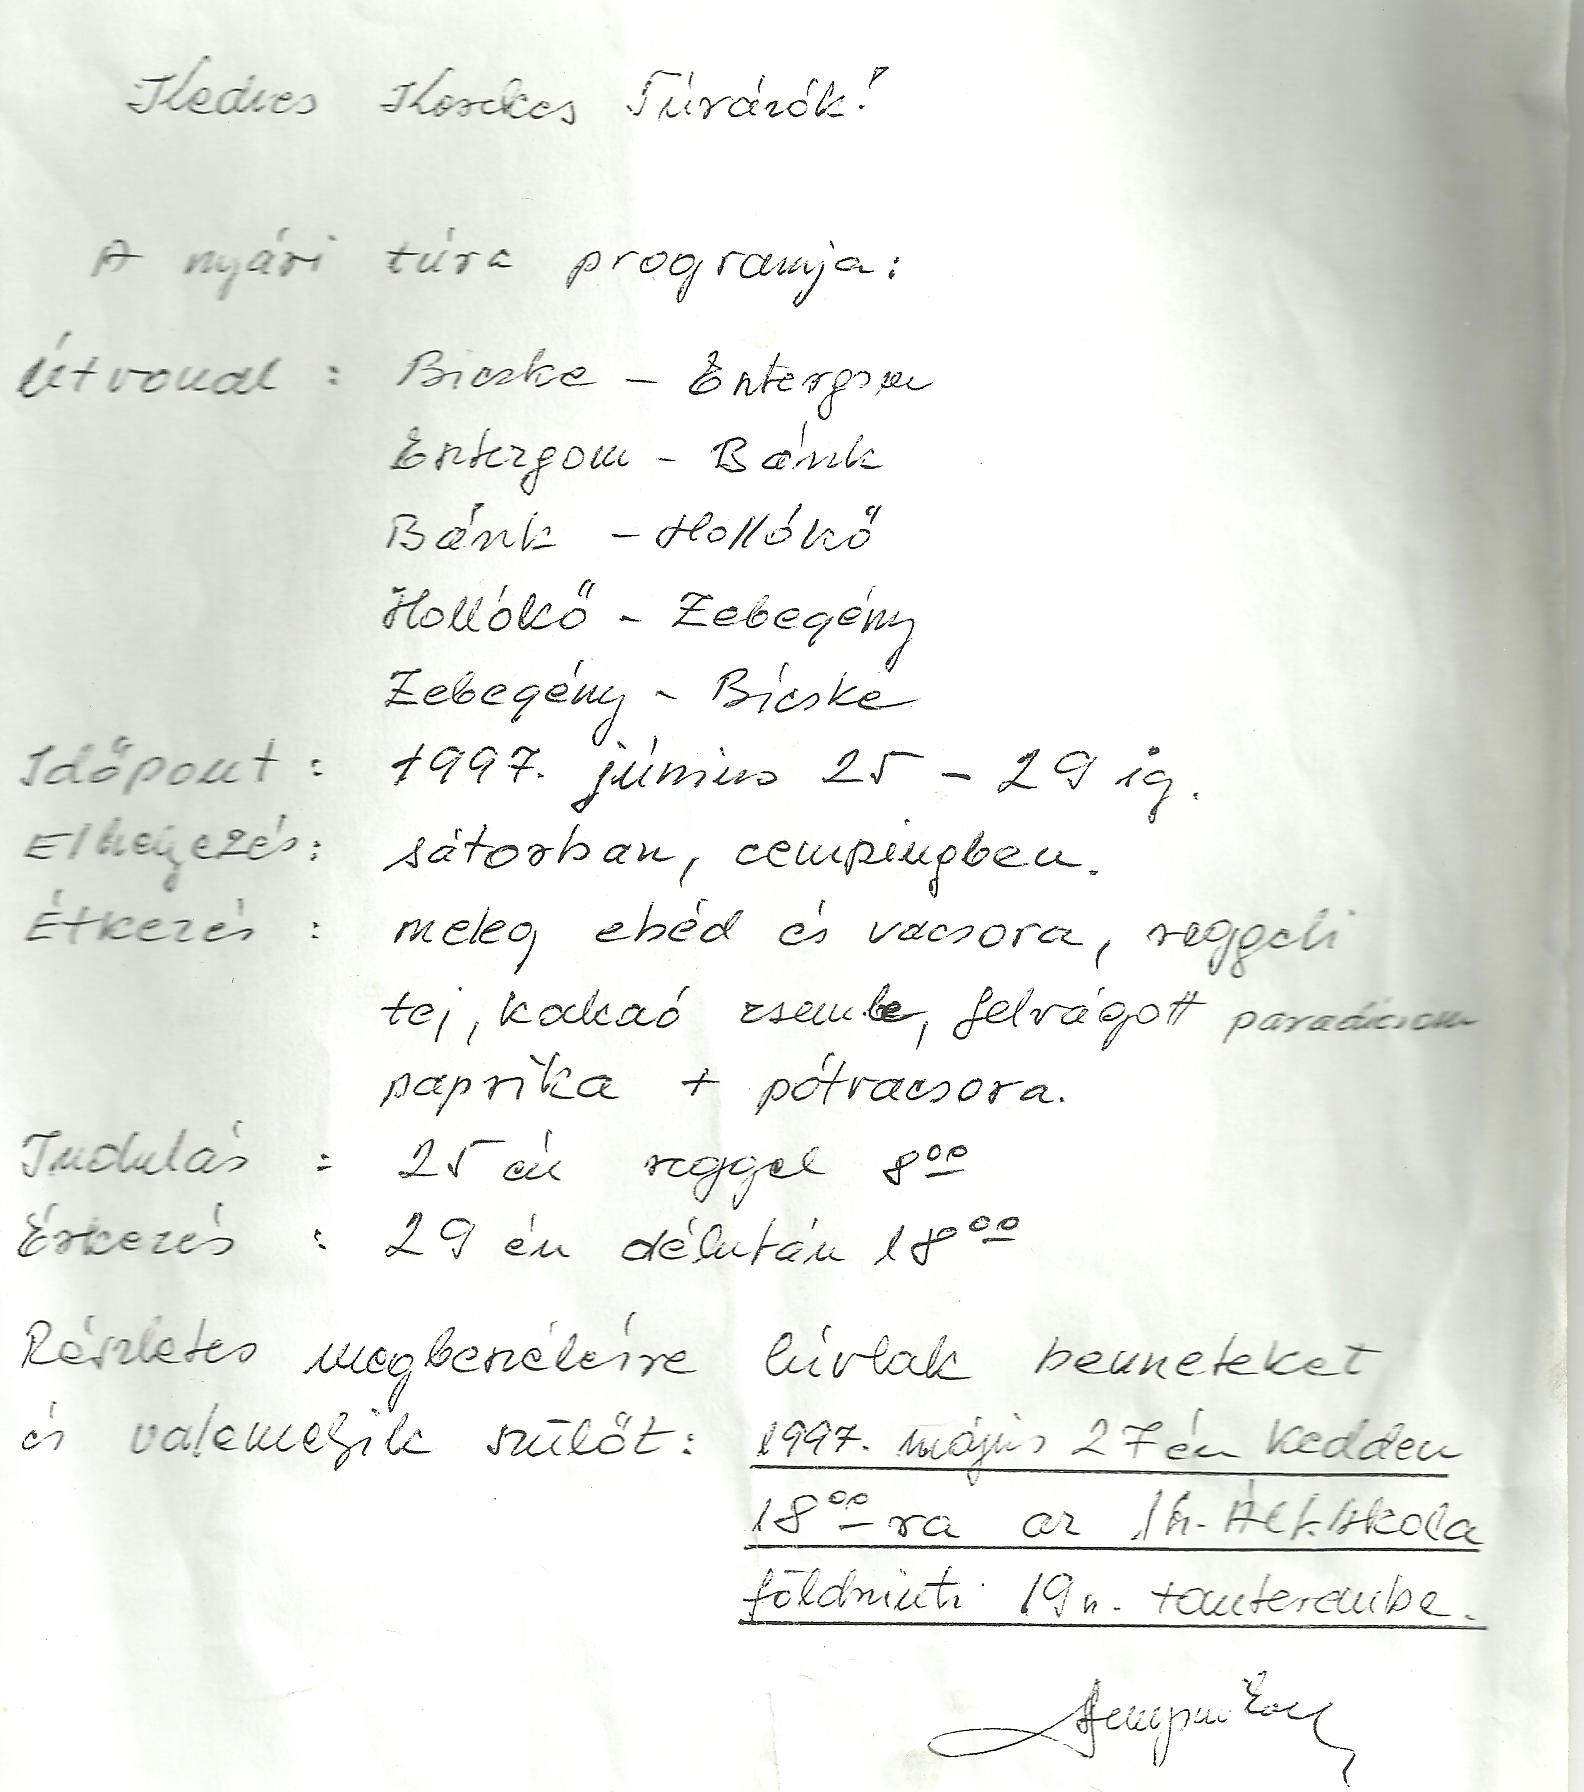 Kedves Kerekes Túrázók!
A nyári túra programja:
Útvonal : Bicske - Esztergom
Esztergom - Bánk
Bánk - Hollókő
Hollókő - Zebegény
Zebegény - Bicske
Időpont : 1997. június 25 - 29 ig.
Elhelyezés: sátorban, campingben.
Étkezés : meleg ebéd és vacsora, reggeli
tej, kakaó zsemle, felvágott paradicsom
paprika + pótvacsora.
Indulás : 25 én reggel 8⁰⁰
Érkezés : 29 én délután 18⁰⁰
Részletes megbeszélésre hívlak benneteket
és valamelyik szülőt: 1997. május 27 én kedden
18⁰⁰-ra az Ált. Iskola
földszinti 19 sz. tanterembe.